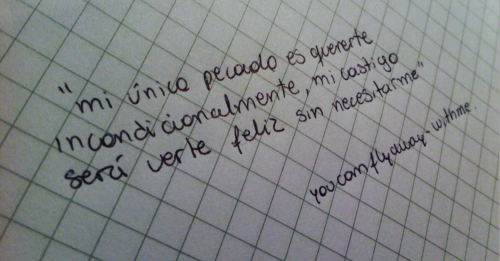 "mi único pecado es quererte
incondicionalmente, mi castigo
será verte feliz sin necesitarme"
youcanflyaway-withme.